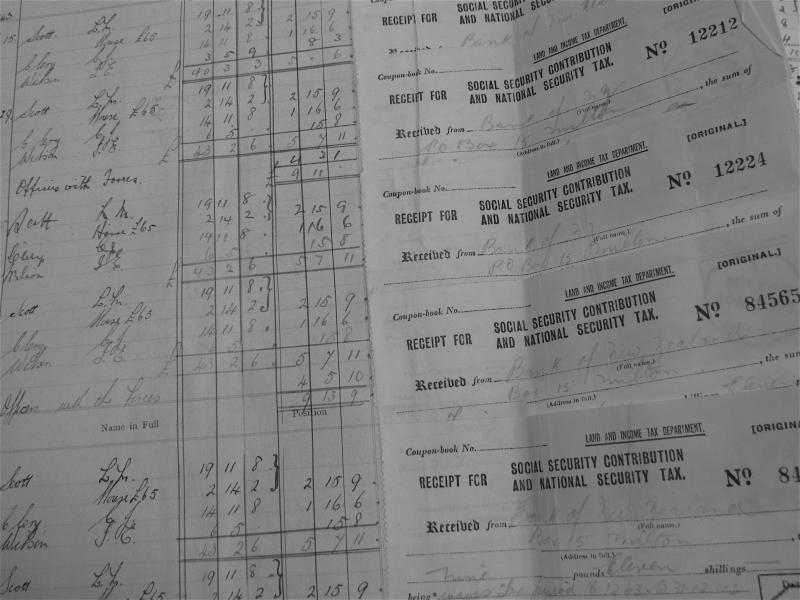 15 Scott L.M. 19 11 8
House £65 2 14 2 2 15 9
14 11 8 1 16 6
Clery 3 5 9 8 3
Wilson J.C. £ 40 3 3 5 . 6
29 Scott L.M. 19 11 8
House £65 2 14 2 2 15 9
14 11 8 1 16 6
Clery 6 5 15 8
Wilson J.C. £ 43 2 6 5 7 11
4 3 1
Officers with Forces. £ 9 11
Scott L.M. 19 11 8
House £65 2 14 2 2 15 9
14 11 8 1 16 6
Clery 6 5 15 8
Wilson J.C. £ 43 2 6 5 7 11
Scott L.M. 19 11 8
House £65 2 14 2 2 15 9
14 11 8 1 16 6
Clery 5 15 8
Wilson J.C. £ 43 2 6 5 7 11
4 5 10
Officers with the Forces 9 13 9
Name in Full Position
Scott L.M. 19 11 8
House £65 2 14 2 2 15 9
14 11 8 1 16 6
Clery 6 5 15 8
Wilson J.C. 43 2 6 5 7 11
Scott L.M. 19 11 8
2 14 2 2 15 9
RECEIPT FOR SOCIAL SECURITY CONTRIBUTION
AND NATIONAL SECURITY TAX.
[ORIGINAL.]
Bank of New
LAND AND INCOME TAX DEPARTMENT.
Coupon-book No.
No 12212
RECEIPT FOR SOCIAL SECURITY CONTRIBUTION
AND NATIONAL SECURITY TAX.
, the sum of
Received from Bank of N.Z.
(Full name.)
PO Box 15 Milton
(Address in full.)
[ORIGINAL.]
LAND AND INCOME TAX DEPARTMENT.
Coupon-book No.
No 12224
RECEIPT FOR SOCIAL SECURITY CONTRIBUTION
AND NATIONAL SECURITY TAX.
, the sum of
Received from Bank of N.Z.
(Full name.)
PO Box 15 Milton
[ORIGINAL.]
LAND AND INCOME TAX DEPARTMENT.
Coupon-book No.
No 84565
RECEIPT FOR SOCIAL SECURITY CONTRIBUTION
AND NATIONAL SECURITY TAX.
, the sum
Received from Bank of New Zealand
(Full name.)
Box 15 Milton
(Address in full.)
Eleven
[ORIGINA
LAND AND INCOME TAX DEPARTMENT.
Coupon-book No.
No 84
RECEIPT FOR SOCIAL SECURITY CONTRIBUTION
AND NATIONAL SECURITY TAX.
Received from Bank of New Zealand
(Full name.)
Box 15 Milton
(Address in full.)
Nine pounds Eleven shillings
being